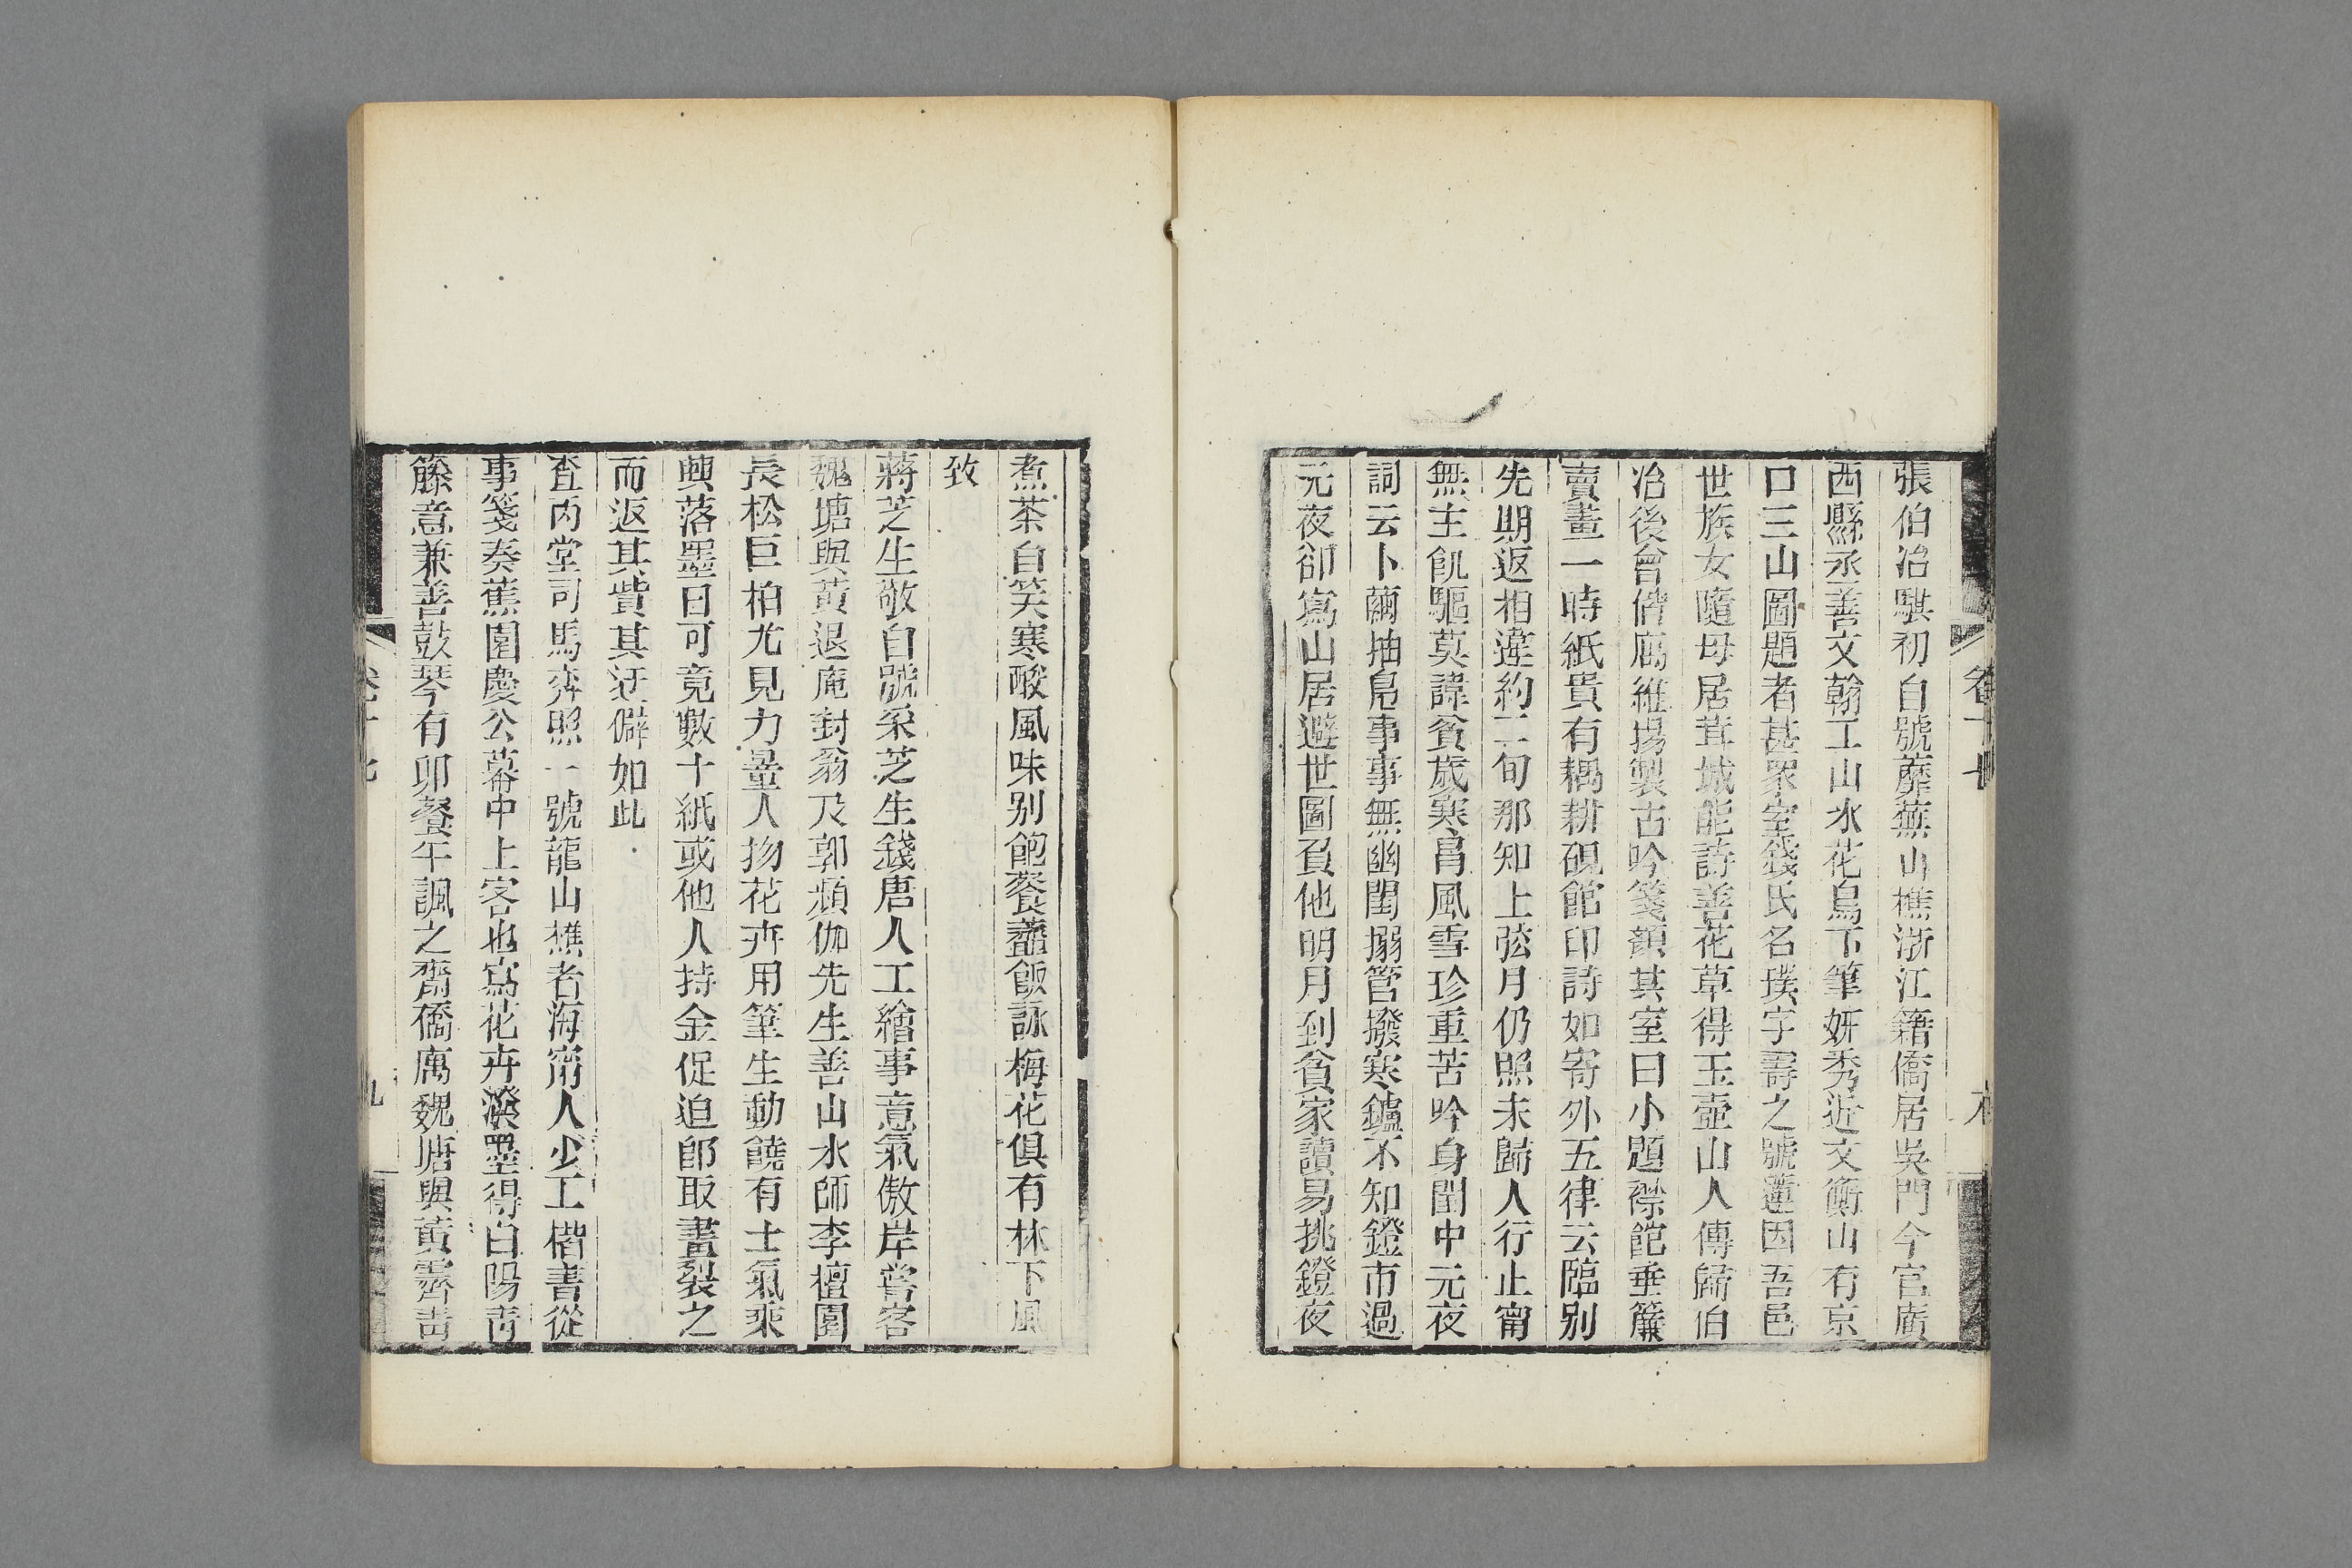 張伯冶騏初自號蘼蕪山樵浙江籍僑居吳門今官廣
西縣丞善文翰工山水花鳥下筆妍秀近文衡山有京
口三山圖題者甚衆室錢氏名璞字壽之號蓮因吾邑
世族女隨母居葑城能詩善花草得玉壺山人傳歸伯
冶後曾偕寓維揚製古吟箋額其室曰小題襟館垂簾
賣畫一時紙貴有耦耕硯館印詩如寄外五律云臨别
先期返相違約二旬那知上弦月仍照未歸人行止甯
無主飢驅莫諱貧歲寒肩風雪珍重苦吟身閨中元夜
詞云卜繭抽凫事事無幽閨搦管撥寒鑪不知鐙市過
元夜卻寫山居避世圖負他明月到貧家讀易挑鐙夜
卷十七
煮茶自笑寒酸風味别飽餐虀飯詠梅花俱有林下風
致
蔣芝生敬自號采芝生錢唐人工繪事意氣傲岸嘗客
魏塘與黃退庵封翁及郭頻伽先生善山水師李檀園
長松巨柏尤見力量人物花卉用筆生動饒有士氣乘
興落墨日可竟數十紙或他人持金促迫卽取畫裂之
而返其貲其迂僻如此
查丙堂司馬奕照一號龍山樵者海甯人少工楷書從
事箋奏蕉園慶公幕中上客也寫花卉潑墨得白陽靑
籐意兼善鼓琴有卯餐午諷之齋僑寓魏塘與黃霽靑
卷十七
九